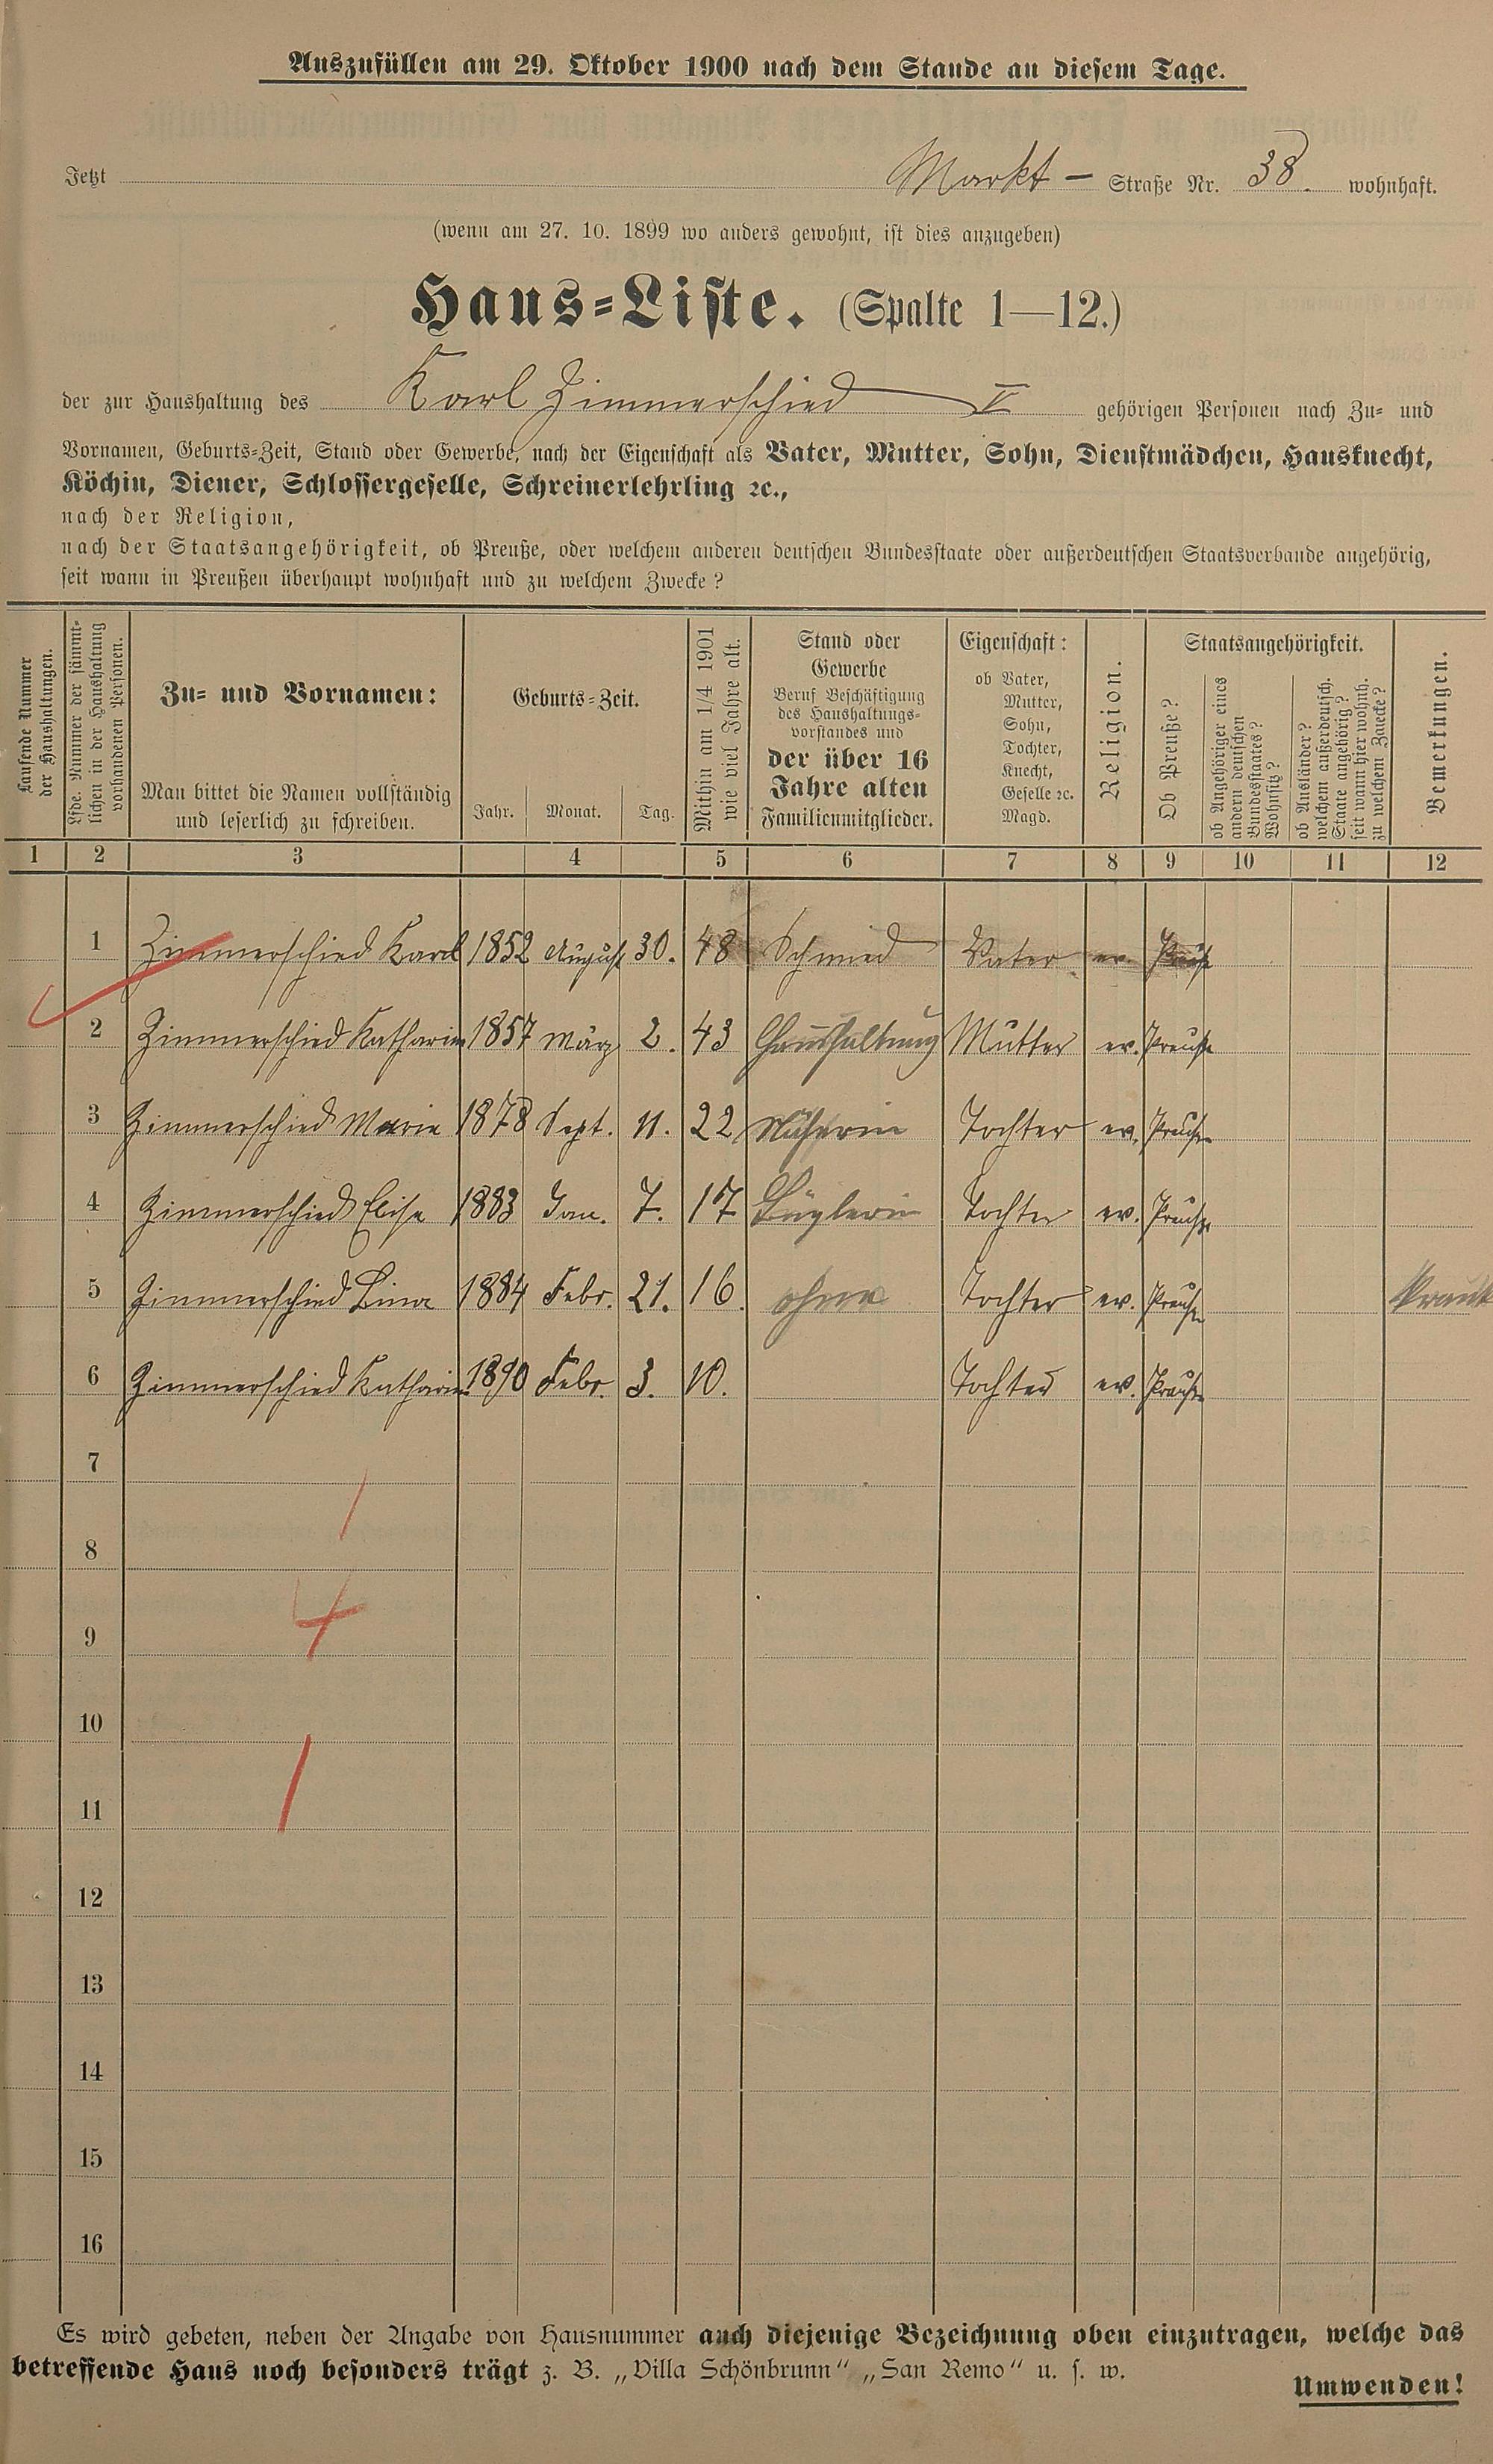 Auszufüllen am 29. Oktober 1900 nach dem Stande an diesem Tage.
Jetzt Markt - Straße Nr. 38. wohnhaft.
(wenn am 27. 10. 1899 wo anders gewohnt, ist dies anzugeben)
Haus-Liste. (Spalte 1—12.)
der zur Haushaltung des Karl Zimmerschied V gehörigen Personen nach Zu- und
Vornamen, Geburts-Zeit, Stand oder Gewerbe, nach der Eigenschaft als Vater, Mutter, Sohn, Dienstmädchen, Hausknecht,
Köchin, Diener, Schlossergeselle, Schreinerlehrling ꝛc.,
nach der Religion,
nach der Staatsangehörigkeit, ob Preuße, oder welchem anderen deutschen Bundesstaate oder außerdeutschen Staatsverbande angehörig,
seit wann in Preußen überhaupt wohnhaft und zu welchem Zwecke?
Laufende Nummer
der Haushaltungen.
Lfde. Nummer der sämmt-
lichen in der Haushaltung
vorhandenen Personen.
Zu- und Vornamen:
Man bittet die Namen vollständig
und leserlich zu schreiben.
Geburts-Zeit.
Jahr. Monat. Tag.
Mithin am 1/4 1901
wie viel Jahre alt.
Stand oder
Gewerbe
Beruf Beschäftigung
des Haushaltungs-
vorstandes und
der über 16
Jahre alten
Familienmitglieder.
Eigenschaft:
ob Vater,
Mutter,
Sohn,
Tochter,
Knecht,
Geselle ꝛc.
Magd.
Religion.
Staatsangehörigkeit.
Ob Preuße?
ob Angehöriger eines
andern deutschen
Bundesstaates?
Wohnsitz?
ob Ausländer?
welchem außerdeutsch.
Staate angehörig?
seit wann hier wohnh.
zu welchem Zwecke?
Bemerkungen.
1 2 3 4 5 6 7 8 9 10 11 12
1 Zimmerschied Karl 1852 August 30. 48 Schmied Vater ev. Preuße
2 Zimmerschied Katharine 1857 März 2. 43 Haushaltung Mutter ev. Preuße
3 Zimmerschied Marie 1878 Sept. 11. 22 Näherin Tochter ev. Preuße
4 Zimmerschied Elise 1883 Jan. 7. 17 Büglerin Tochter ev. Preuße
5 Zimmerschied Lina 1884 Febr. 21. 16. ohne Tochter ev. Preuße krank
6 Zimmerschied Katharine 1890 Febr. 3. 10. Tochter ev. Preuße
7
1
8
4
9
10
1
11
12
13
14
15
16
Es wird gebeten, neben der Angabe von Hausnummer auch diejenige Bezeichnung oben einzutragen, welche das
betreffende Haus noch besonders trägt z. B. „Villa Schönbrunn“ „San Remo“ u. s. w.
Umwenden!